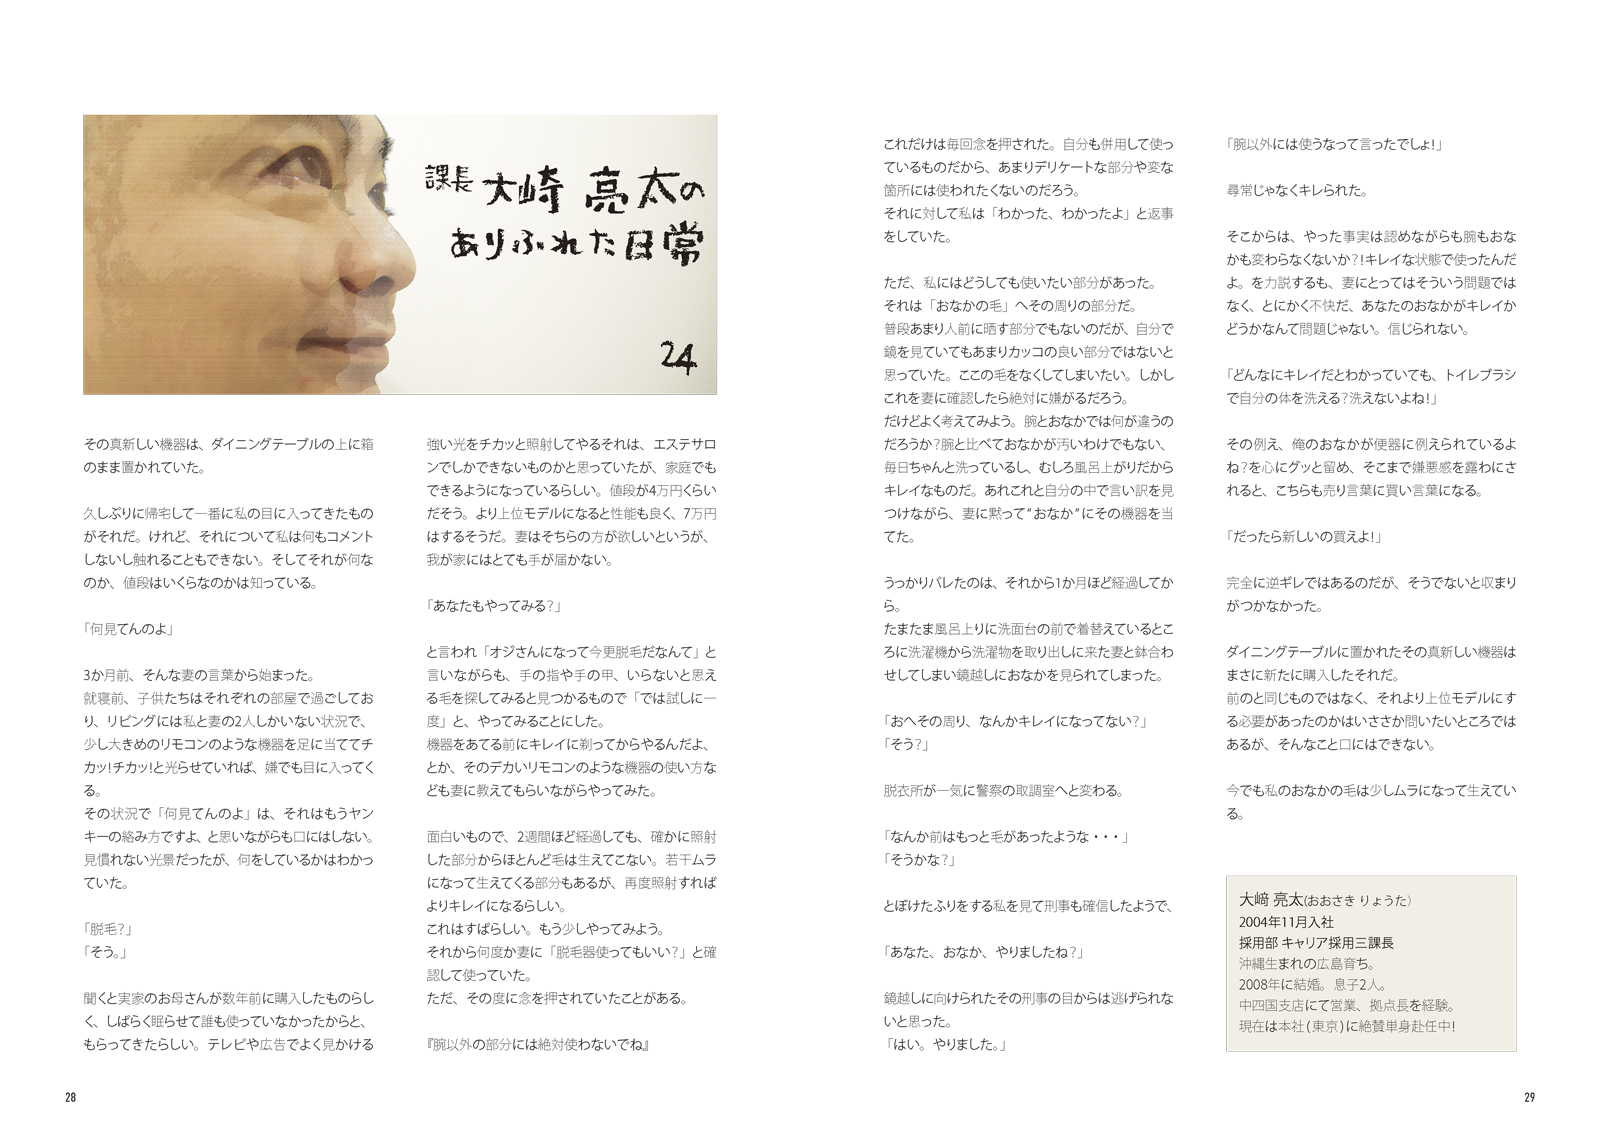 課長 大崎 亮太の
ありふれた日常
24
その真新しい機器は、ダイニングテーブルの上に箱
のまま置かれていた。
久しぶりに帰宅して一番に私の目に入ってきたもの
がそれだ。けれど、それについて私は何もコメント
しないし触れることもできない。そしてそれが何な
のか、値段はいくらなのかは知っている。
「何見てんのよ」
3か月前、そんな妻の言葉から始まった。
就寝前、子供たちはそれぞれの部屋で過ごしてお
り、リビングには私と妻の2人しかいない状況で、
少し大きめのリモコンのような機器を足に当ててチ
カッ!チカッ!と光らせていれば、嫌でも目に入ってく
る。
その状況で「何見てんのよ」は、それはもうヤン
キーの絡み方ですよ、と思いながらも口にはしない。
見慣れない光景だったが、何をしているかはわかっ
ていた。
「脱毛?」
「そう。」
聞くと実家のお母さんが数年前に購入したものらし
く、しばらく眠らせて誰も使っていなかったからと、
もらってきたらしい。テレビや広告でよく見かける
強い光をチカッと照射してやるそれは、エステサロ
ンでしかできないものかと思っていたが、家庭でも
できるようになっているらしい。値段が4万円くらい
だそう。より上位モデルになると性能も良く、7万円
はするそうだ。妻はそちらの方が欲しいというが、
我が家にはとても手が届かない。
「あなたもやってみる?」
と言われ「オジさんになって今更脱毛だなんて」と
言いながらも、手の指や手の甲、いらないと思え
る毛を探してみると見つかるもので「では試しに一
度」と、やってみることにした。
機器をあてる前にキレイに剃ってからやるんだよ、
とか、そのデカいリモコンのような機器の使い方な
ども妻に教えてもらいながらやってみた。
面白いもので、2週間ほど経過しても、確かに照射
した部分からほとんど毛は生えてこない。若干ムラ
になって生えてくる部分もあるが、再度照射すれば
よりキレイになるらしい。
これはすばらしい。もう少しやってみよう。
それから何度か妻に「脱毛器使ってもいい?」と確
認して使っていた。
ただ、その度に念を押されていたことがある。
『腕以外の部分には絶対使わないでね』
28
これだけは毎回念を押された。自分も併用して使っ
ているものだから、あまりデリケートな部分や変な
箇所には使われたくないのだろう。
それに対して私は「わかった、わかったよ」と返事
をしていた。
ただ、私にはどうしても使いたい部分があった。
それは「おなかの毛」へその周りの部分だ。
普段あまり人前に晒す部分でもないのだが、自分で
鏡を見ていてもあまりカッコの良い部分ではないと
思っていた。ここの毛をなくしてしまいたい。しかし
これを妻に確認したら絶対に嫌がるだろう。
だけどよく考えてみよう。腕とおなかでは何が違うの
だろうか?腕と比べておなかが汚いわけでもない、
毎日ちゃんと洗っているし、むしろ風呂上がりだから
キレイなものだ。あれこれと自分の中で言い訳を見
つけながら、妻に黙って"おなか"にその機器を当
てた。
うっかりバレたのは、それから1か月ほど経過してか
ら。
たまたま風呂上りに洗面台の前で着替えているとこ
ろに洗濯機から洗濯物を取り出しに来た妻と鉢合わ
せしてしまい鏡越しにおなかを見られてしまった。
「おへその周り、なんかキレイになってない?」
「そう?」
脱衣所が一気に警察の取調室へと変わる。
「なんか前はもっと毛があったような・・・」
「そうかな?」
とぼけたふりをする私を見て刑事も確信したようで、
「あなた、おなか、やりましたね?」
鏡越しに向けられたその刑事の目からは逃げられな
いと思った。
「はい。やりました。」
「腕以外には使うなって言ったでしょ!」
尋常じゃなくキレられた。
そこからは、やった事実は認めながらも腕もおな
かも変わらなくないか?!キレイな状態で使ったんだ
よ。を力説するも、妻にとってはそういう問題では
なく、とにかく不快だ、あなたのおなかがキレイか
どうかなんて問題じゃない。信じられない。
「どんなにキレイだとわかっていても、トイレブラシ
で自分の体を洗える?洗えないよね!」
その例え、俺のおなかが便器に例えられているよ
ね?を心にグッと留め、そこまで嫌悪感を露わにさ
れると、こちらも売り言葉に買い言葉になる。
「だったら新しいの買えよ!」
完全に逆ギレではあるのだが、そうでないと収まり
がつかなかった。
ダイニングテーブルに置かれたその真新しい機器は
まさに新たに購入したそれだ。
前のと同じものではなく、それより上位モデルにす
る必要があったのかはいささか問いたいところでは
あるが、そんなこと口にはできない。
今でも私のおなかの毛は少しムラになって生えてい
る。
大﨑 亮太(おおさき りょうた)
2004年11月入社
採用部 キャリア採用三課長
沖縄生まれの広島育ち。
2008年に結婚。息子2人。
中四国支店にて営業、拠点長を経験。
現在は本社(東京)に絶賛単身赴任中!
29